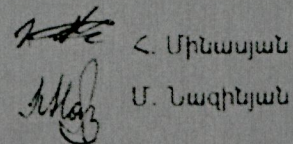 Հ. Մինասյան
Մ. Նազինյան